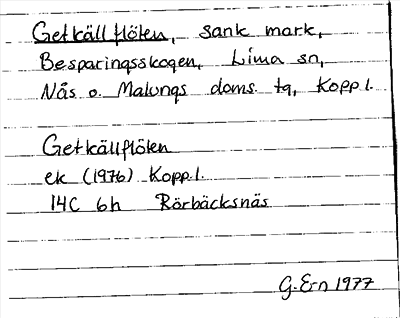 Getkällflöten, sank mark,
Besparingsskogen, Lima sn,
Nås o. Malungs doms. tg, Kopp l.
Getkällflöten
ek (1976) Kopp.l.
14C 6h Rörbäcksnäs
G. Ern 1977